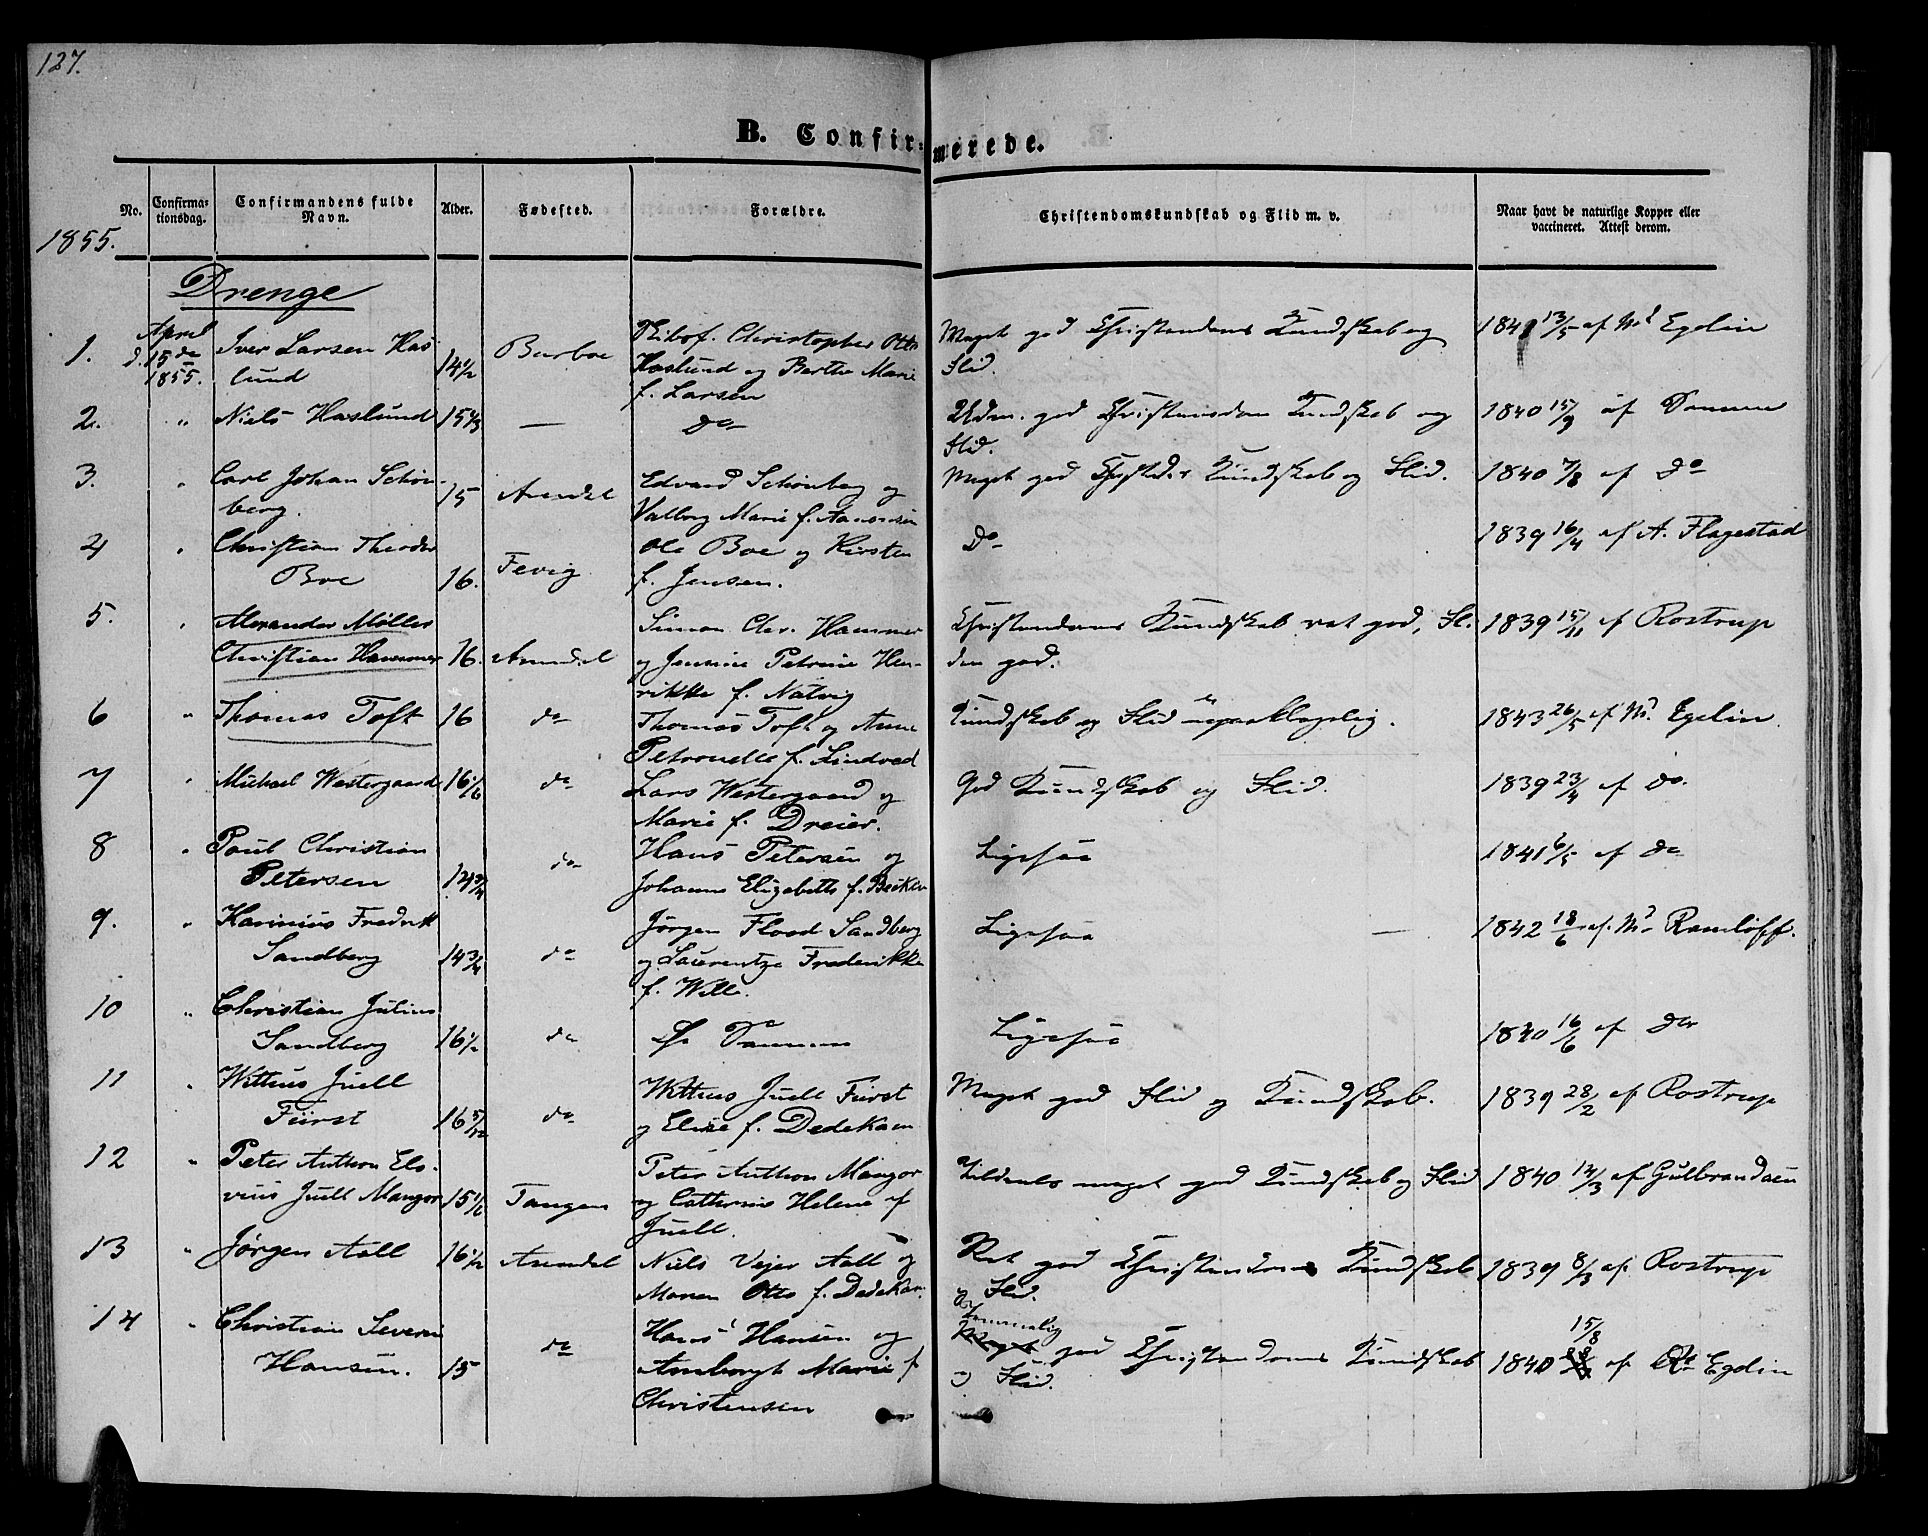 127.
B. Confir-
merede.
No.
Confirma-
tionsdag.
Confirmandens fulde
Navn.
Alder.
Fødested.
Forældre.
Christendomskundskab og Flid m. v.
Naar havt de naturlige Kopper eller
vaccineret. Attest derom.
1855.
Drenge
1. April d. 15de 1855. Iver Larsen Has-
lund 14 1/2 Barboe Christopher Otto
Haslund og Berthe Marie
f. Larsen Meget god Christendoms Kundskab og
Flid. 1841 13/5 af Md Egelin
2. " Niels Haslund 15 — Do Udm. god Christendom Kundskab og
Flid. 1840 15/9 af Samme
3. " Carl Johan Schön-
berg. 15 Arendal Edvard Schönberg og
Valborg Marie f. Aanonsen Meget god Kundskab og Flid. 1840 7/8 af Do
4 " Christian Theodor
Boe 16. Fevig Ole Boe og Kirsten
f. Jensen. Do 1839 16/4 af A. Flagestad
5. " Alexander Møller
Christian Hammer 16. Arendal Simon Chr. Hammer
og Jensine Petrine Hen-
rikke f. Natvig Christendoms Kundskab ret god, Fli-
den god. 1839 15/11 af Rostrup
6 " Thomas Toft 16 do Thomas Toft og Anne
Petronelle f. Lindved Kundskab og Flid upaaklagelig. 1843 26/5 af Md. Egelin
7 " Michael Westergaard 16 1/6 do Lars Westergaard og
Marie f. Dreier. God Kundskab og Flid. 1839 23/4 af do.
8 " Poul Christian
Petersen 14 3/4 do Hans Petersen og
Johanne Elizabeth f. Ligesaa 1841 6/5 af do
9. " Fredrik
Sandberg 14 3/4 do Jørgen Flood Sandberg
og Laurentze Frederikke
f. Wille. Ligesaa — 1842 18/6 af Md Ramløff.
10 " Christian Julius
Sandberg 16 1/2 do De Samme Ligesaa 1840 16/6 af do
11 " Wittus Juell
Fürst 16 5/12 do Wittus Juell Fürst
og Elise f. Dedekam Meget god Flid og Kundskab. 1839 28/2 af Rostrup
12 " Peter Anthon Els-
vius Juell Mangor 15 1/6 Tangen Peter Anthon Mangor
og Cathrine Helene f
Juell. meget god Kundskab og Flid 1840 /3 af Gulbrandsen
13 " Jørgen Aall 16 1/2 Arendal Niels Vejer Aall og
Maren Otto f. Dedekam. Ret god Christendoms Kundskab
og Flid. 1839 8/3 af Rostrup
14 " Christian Severin
Hansen. 15 do Hans Hansen og
Anneborgh Marie f
Christensen Temmelig
Meget god Christendoms Kundskab
og Flid. 15/8
1840 af Egelin